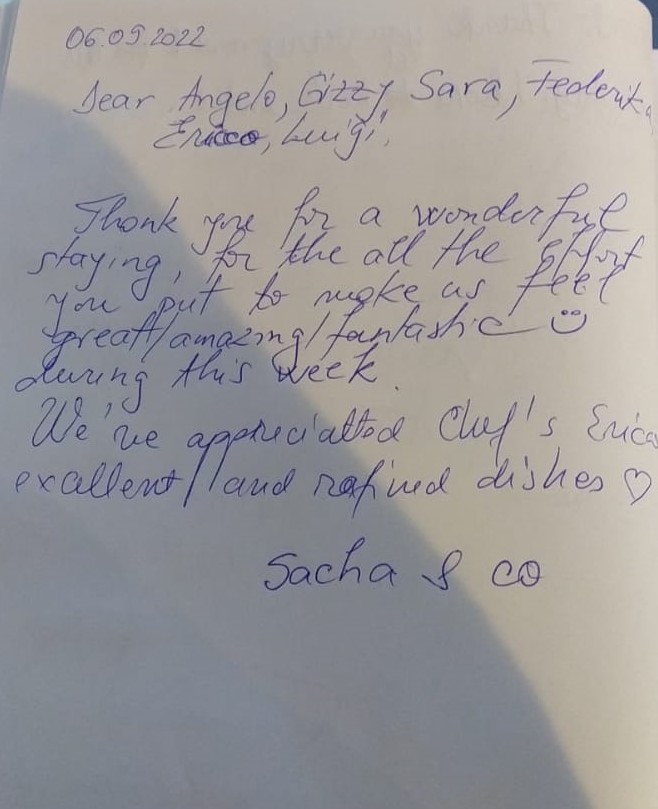 06.09.2022
Dear Angelo, Gizzy, Sara, Federika
Ericco, Luigi,
Thank you for a wonderful
staying, for the all the effort
you put to make us feel
great/amazing/fantastic ☺
during this week.
We've appreciatted Chef's Erico
excellent/ and rafined dishes ♡
Sacha & co